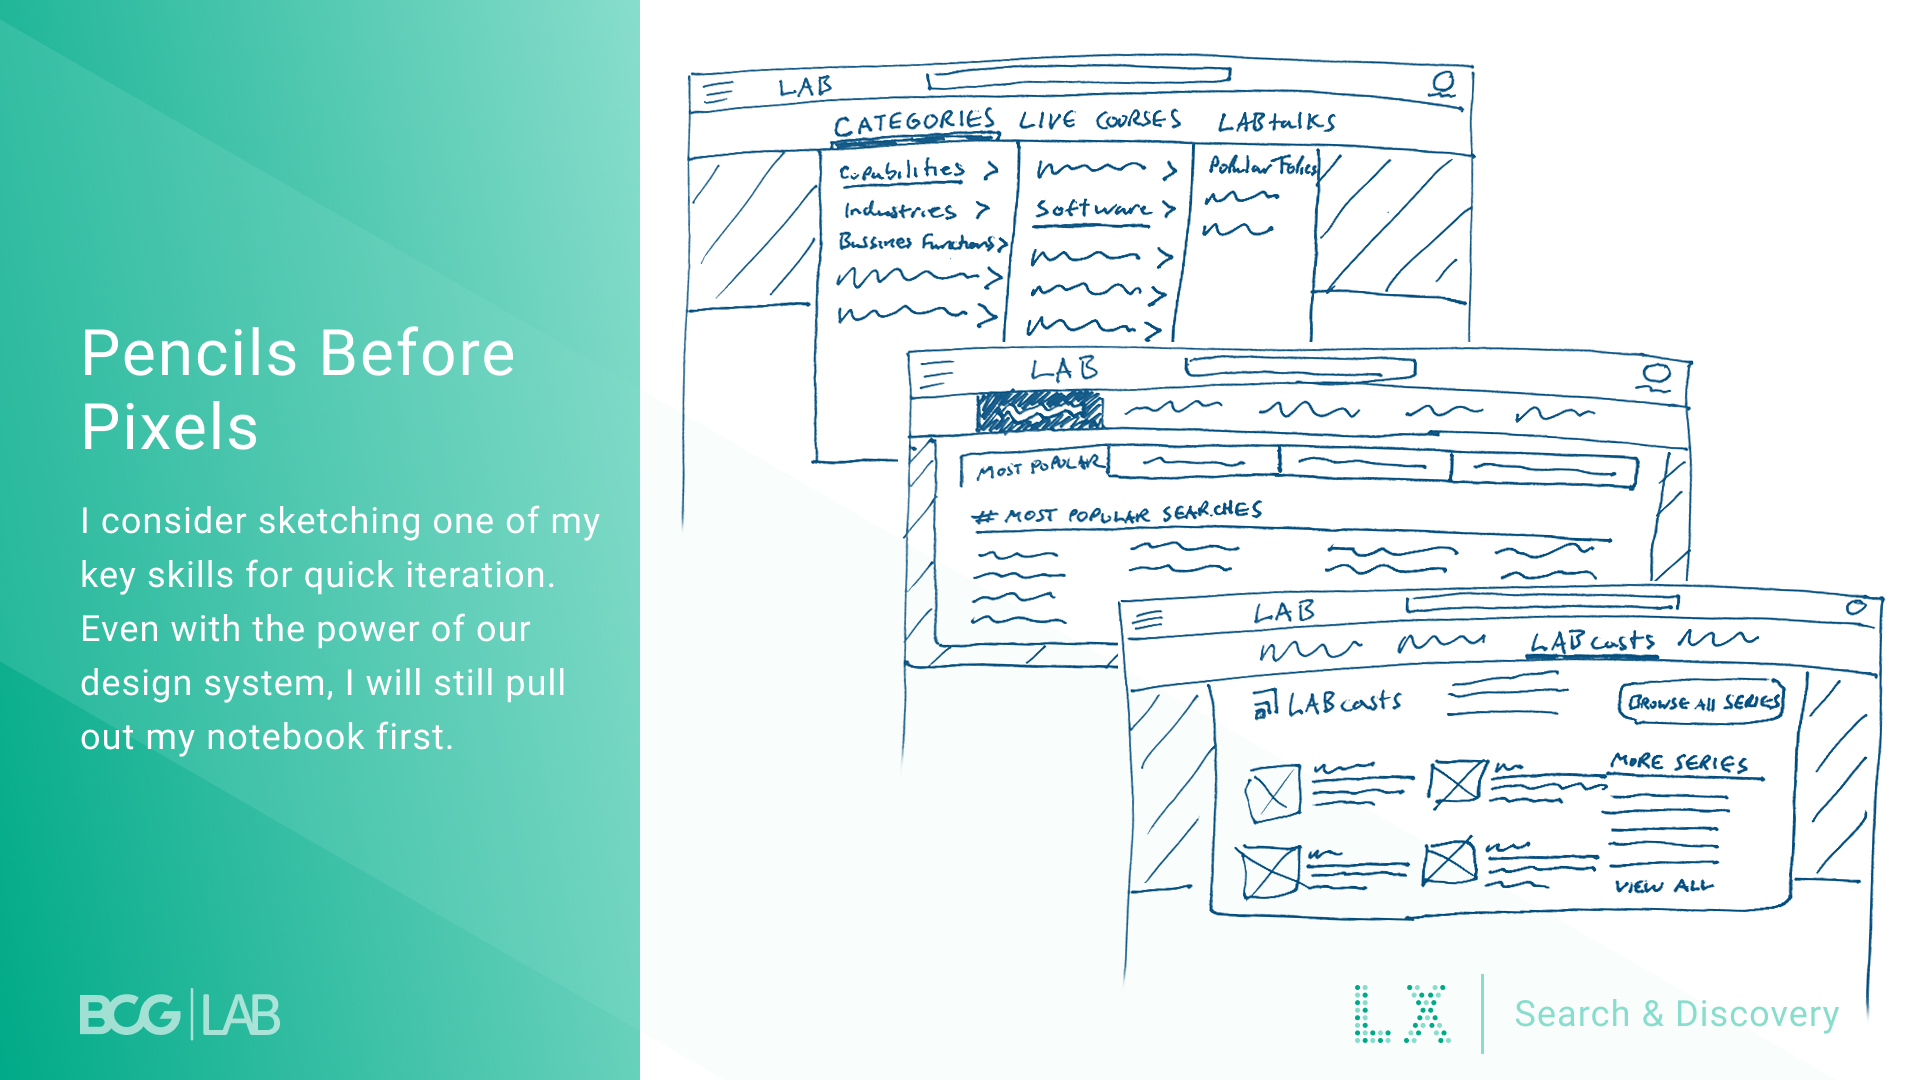 Pencils Before
Pixels
I consider sketching one of my
key skills for quick iteration.
Even with the power of our
design system, I will still pull
out my notebook first.
BCG | LAB
LAB
CATEGORIES LIVE COURSES LABtalks
Capabilities >
Industries >
Bussines Functions >
Software >
Popular Topics
LAB
MOST POPULAR
# MOST POPULAR SEARCHES
LAB
LABcasts
LABcasts
BROWSE All SERIES
MORE SERIES
VIEW ALL
LX | Search & Discovery